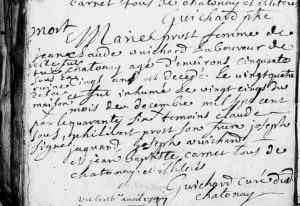 carnet tous de chatonay et illiteré
Guichard pbre
mort Marie prost femme de
jean Claude Guichard Laboureur de
Chatonay agé d'environs cinquante
cinq ans est decedé le vingt quatre
et fut inhumé le vingt cinq du
mois de decembre mil sept cent
quarante six temoins claude
philibert prost son frere joseph
jaquand joseph Guichard
et jean Baptiste carnet tous de
chatonay et illiteré
Guichard curé du
chatonay
avril 1747